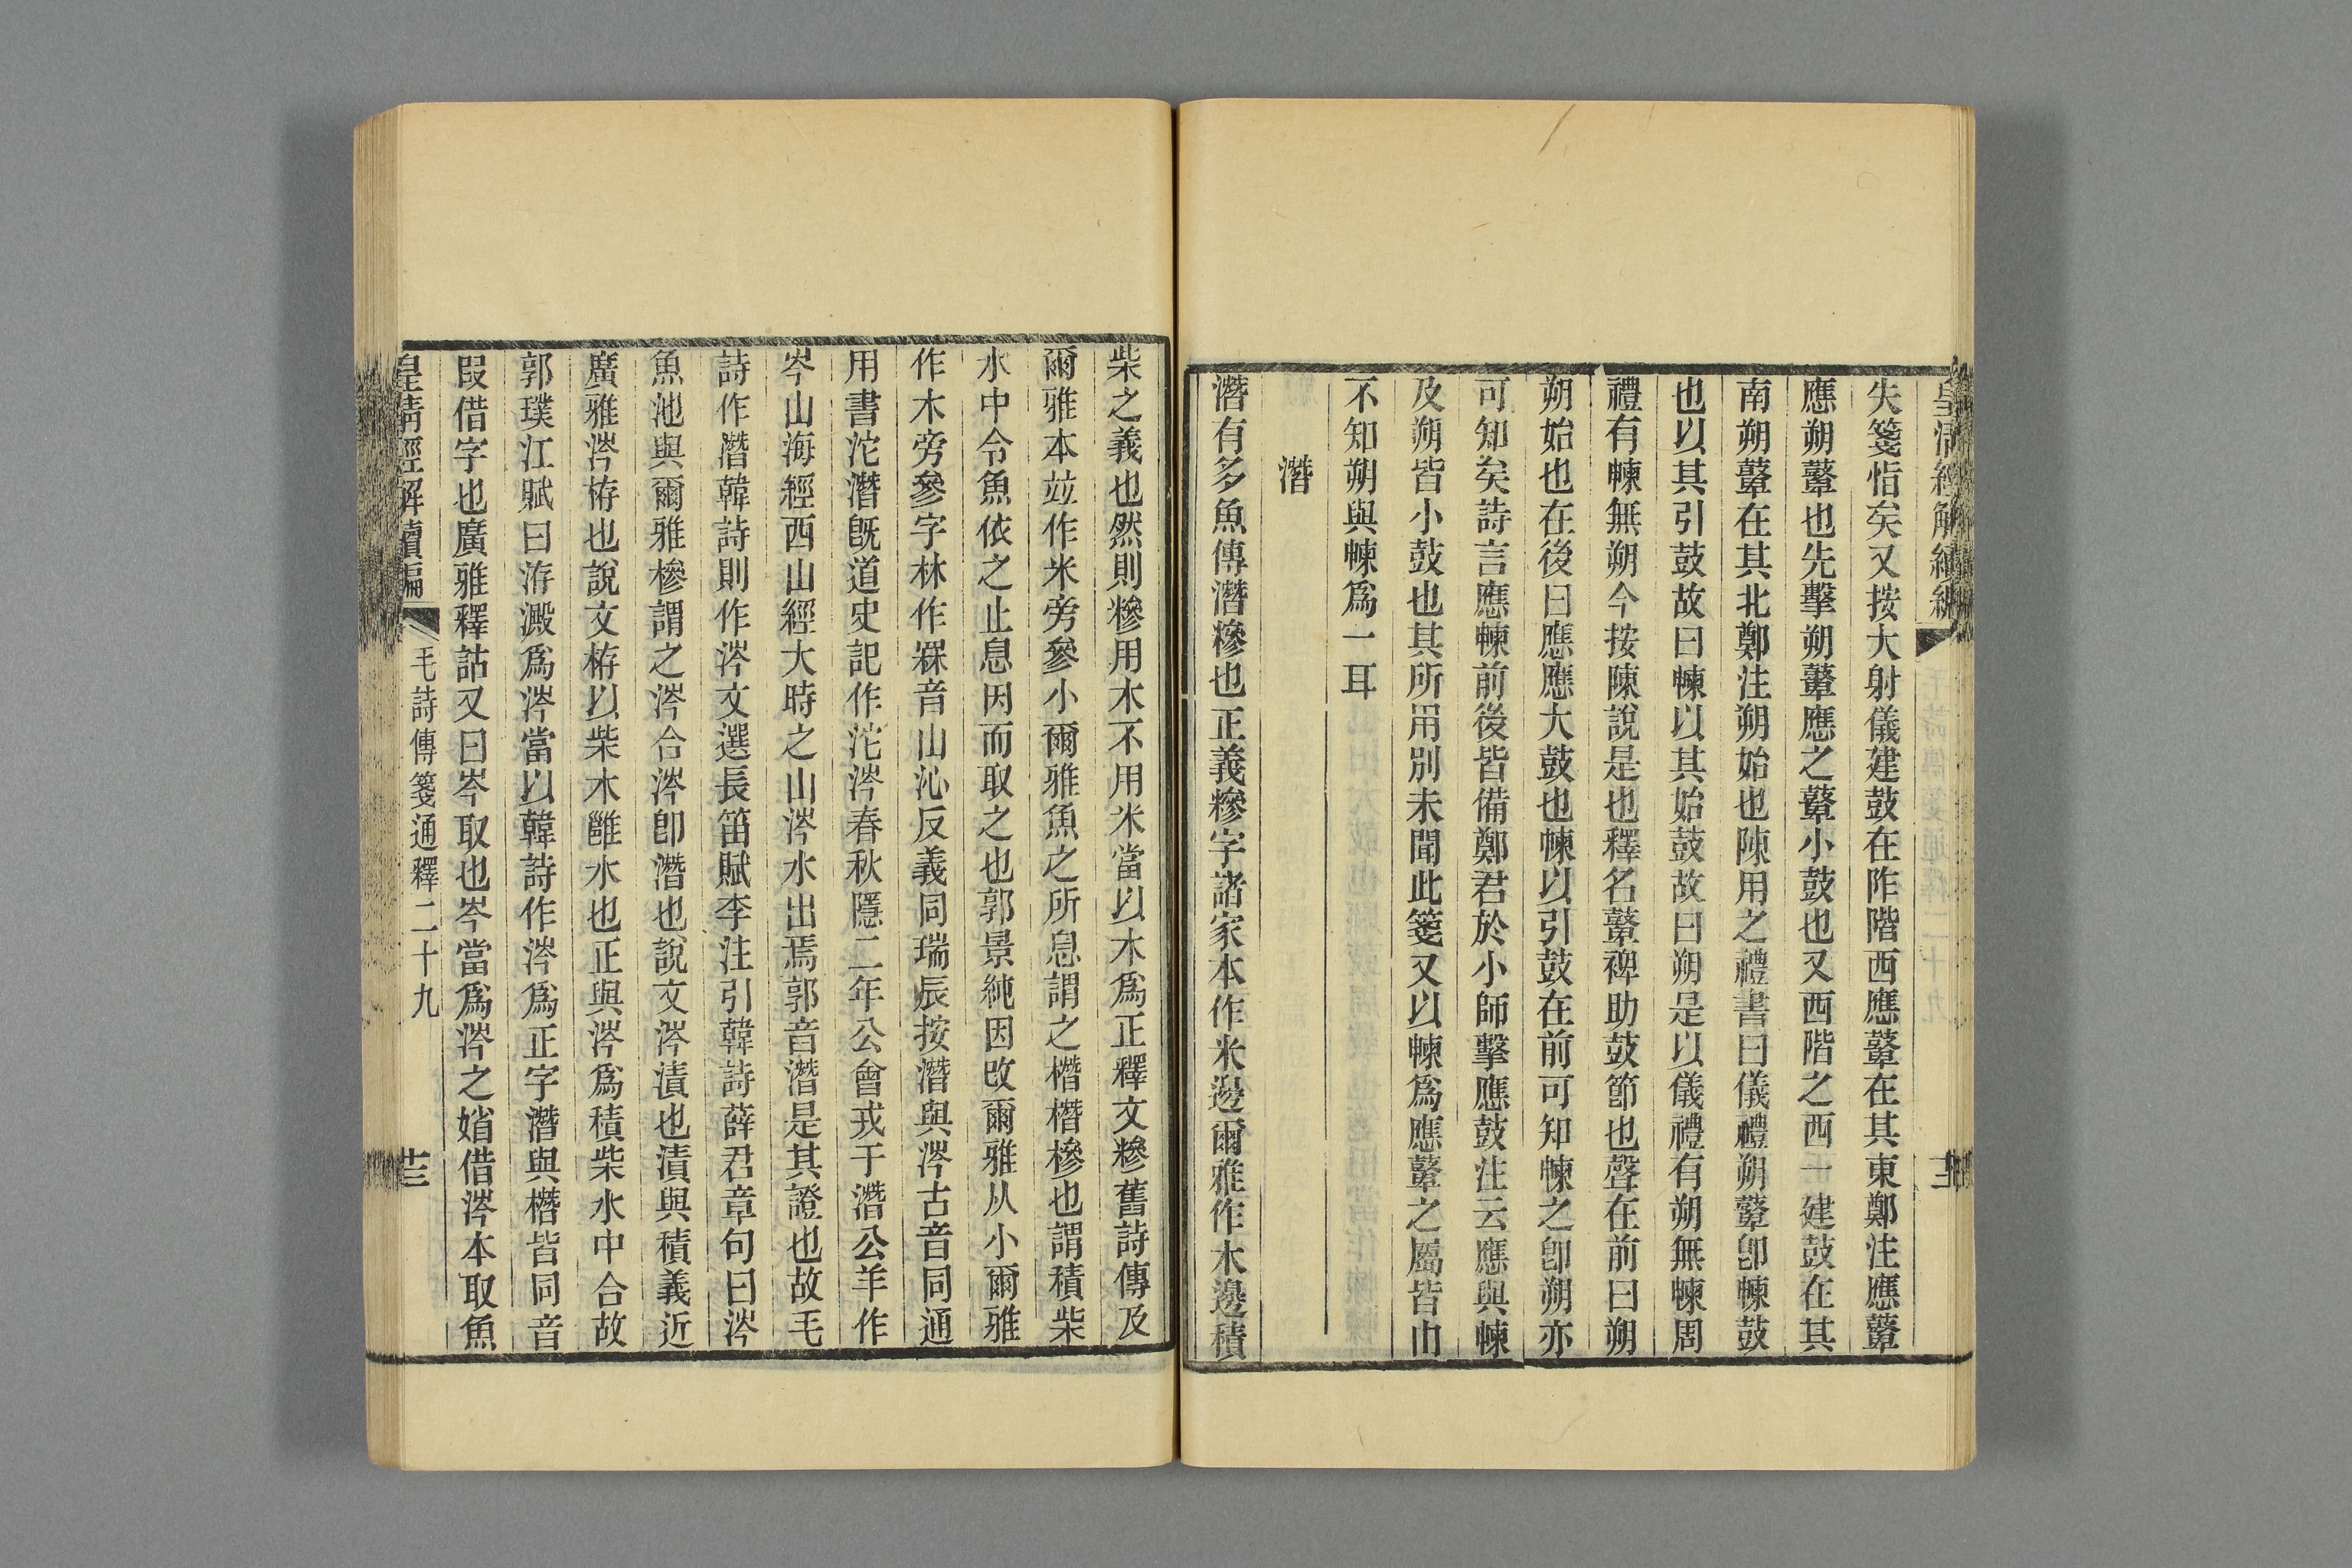 皇清經解續編
失箋恉矣又按大射儀建鼓在阼階西應鼙在其東鄭注應鼙
應朔鼙也先擊朔鼙應之鼙小鼓也又西階之西一建鼓在其
南朔鼙在其北鄭注朔始也陳用之禮書曰儀禮朔鼙卽朄鼓
也以其引鼓故曰朄以其始鼓故曰朔是以儀禮有朔無朄周
禮有朄無朔今按陳說是也釋名鼙裨助鼓節也聲在前曰朔
朔始也在後曰應應大鼓也朄以引鼓在前可知朄之卽朔亦
可知矣詩言應朄前後皆備鄭君於小師擊應鼓注云應與朄
及朔皆小鼓也其所用別未聞此箋又以朄爲應鼙之屬皆由
不知朔與朄爲一耳
潛
潛有多魚傳潛糝也正義糝字諸家本作米邊爾雅作木邊積
柴之義也然則糝用木不用米當以木爲正釋文糝舊詩傳及
爾雅本竝作米旁參小爾雅魚之所息謂之橬橬槮也謂積柴
水中令魚依之止息因而取之也郭景純因改爾雅从小爾雅
作木旁參字林作罧音山沁反義同瑞辰按潛與涔古音同通
用書沱潛旣道史記作沱涔春秋隱二年公會戎于潛公羊作
岑山海經西山經大時之山涔水出焉郭音潛是其證也故毛
詩作潛韓詩則作涔文選長笛賦李注引韓詩薛君章句曰涔
魚池與爾雅槮謂之涔合涔卽潛也說文涔漬也漬與積義近
廣雅涔栫也說文栫以柴木雝水也正與涔爲積柴水中合故
郭璞江賦曰洊澱爲涔當以韓詩作涔爲正字潛與橬皆同音
叚借字也廣雅釋詁又曰岑取也岑當爲涔之媘借涔本取魚
皇清經解續編
毛詩傳箋通釋二十九
廿三